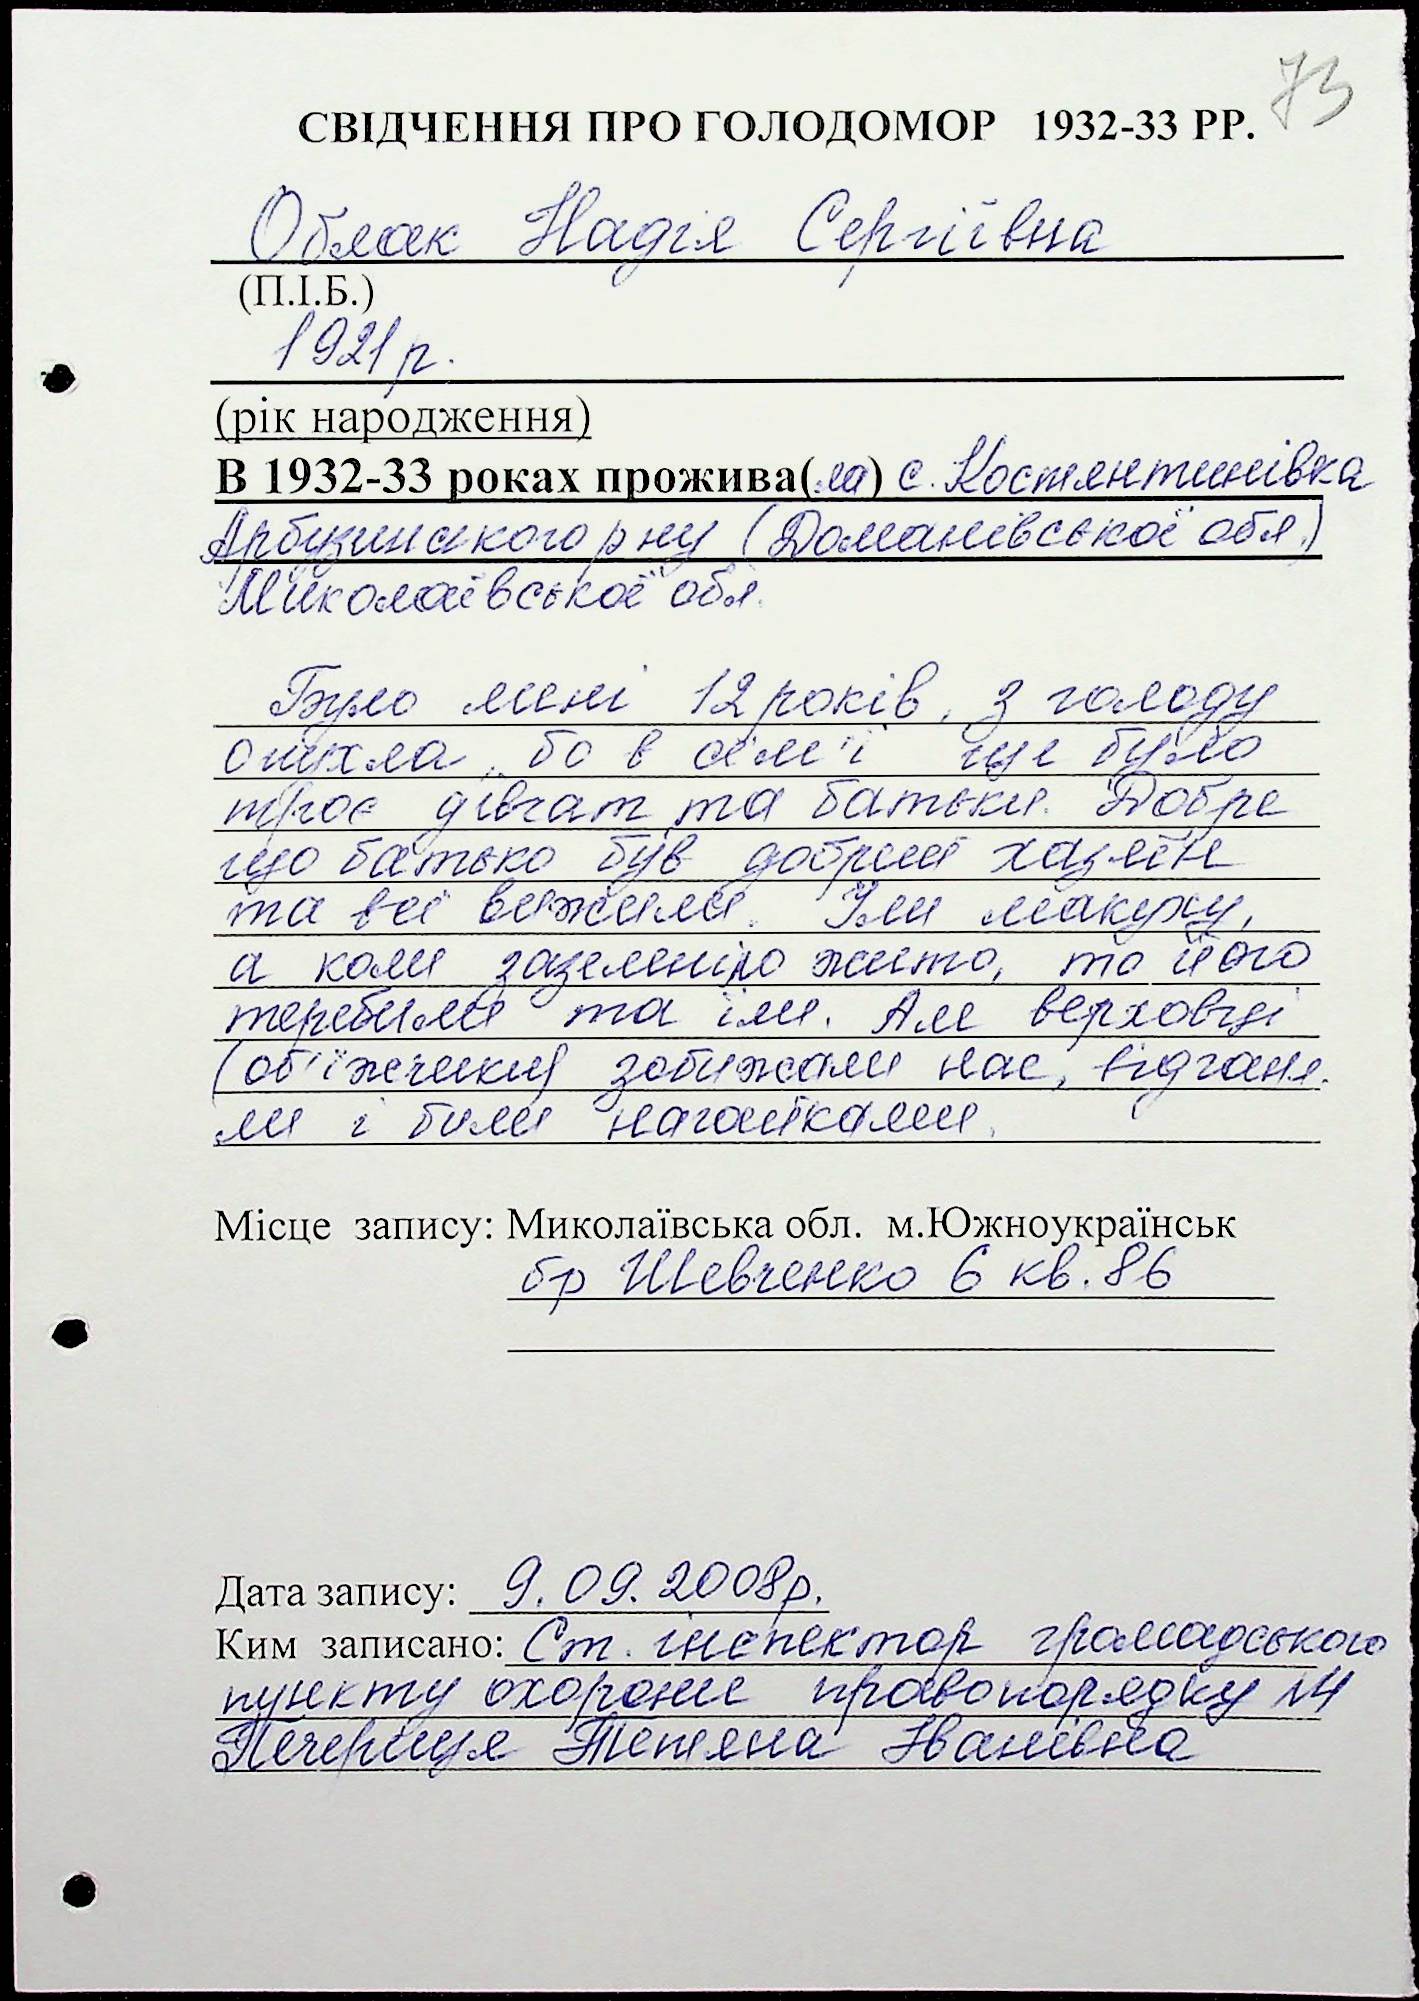 73
СВІДЧЕННЯ ПРО ГОЛОДОМОР 1932-33 РР.
Облак Надія Сергіївна
(П.І.Б.)
1921 р.
(рік народження)
В 1932-33 роках прожива(ла) с. Костянтинівка
Арбузинського р ну (Доманівської обл.)
Миколаївської обл.
Було мені 12 років, з голоду
опухла, бо в сім'ї ще було
троє дівчат та батьки. Добре
що батько був добрий хазяїн
та всі вижили. Їли макуху,
а коли зазеленіло жито, то його
теребили та їли. Але верховці
(об'їжчики) забижали нас, відганя
ли і били нагайками.
Місце запису: Миколаївська обл. м.Южноукраїнськ
бр Шевченко 6 кв. 86
Дата запису: 9.09.2008р.
Ким записано: Ст. інспектор громадського
пункту охорони правопорядку №4
Печериця Тетяна Іванівна